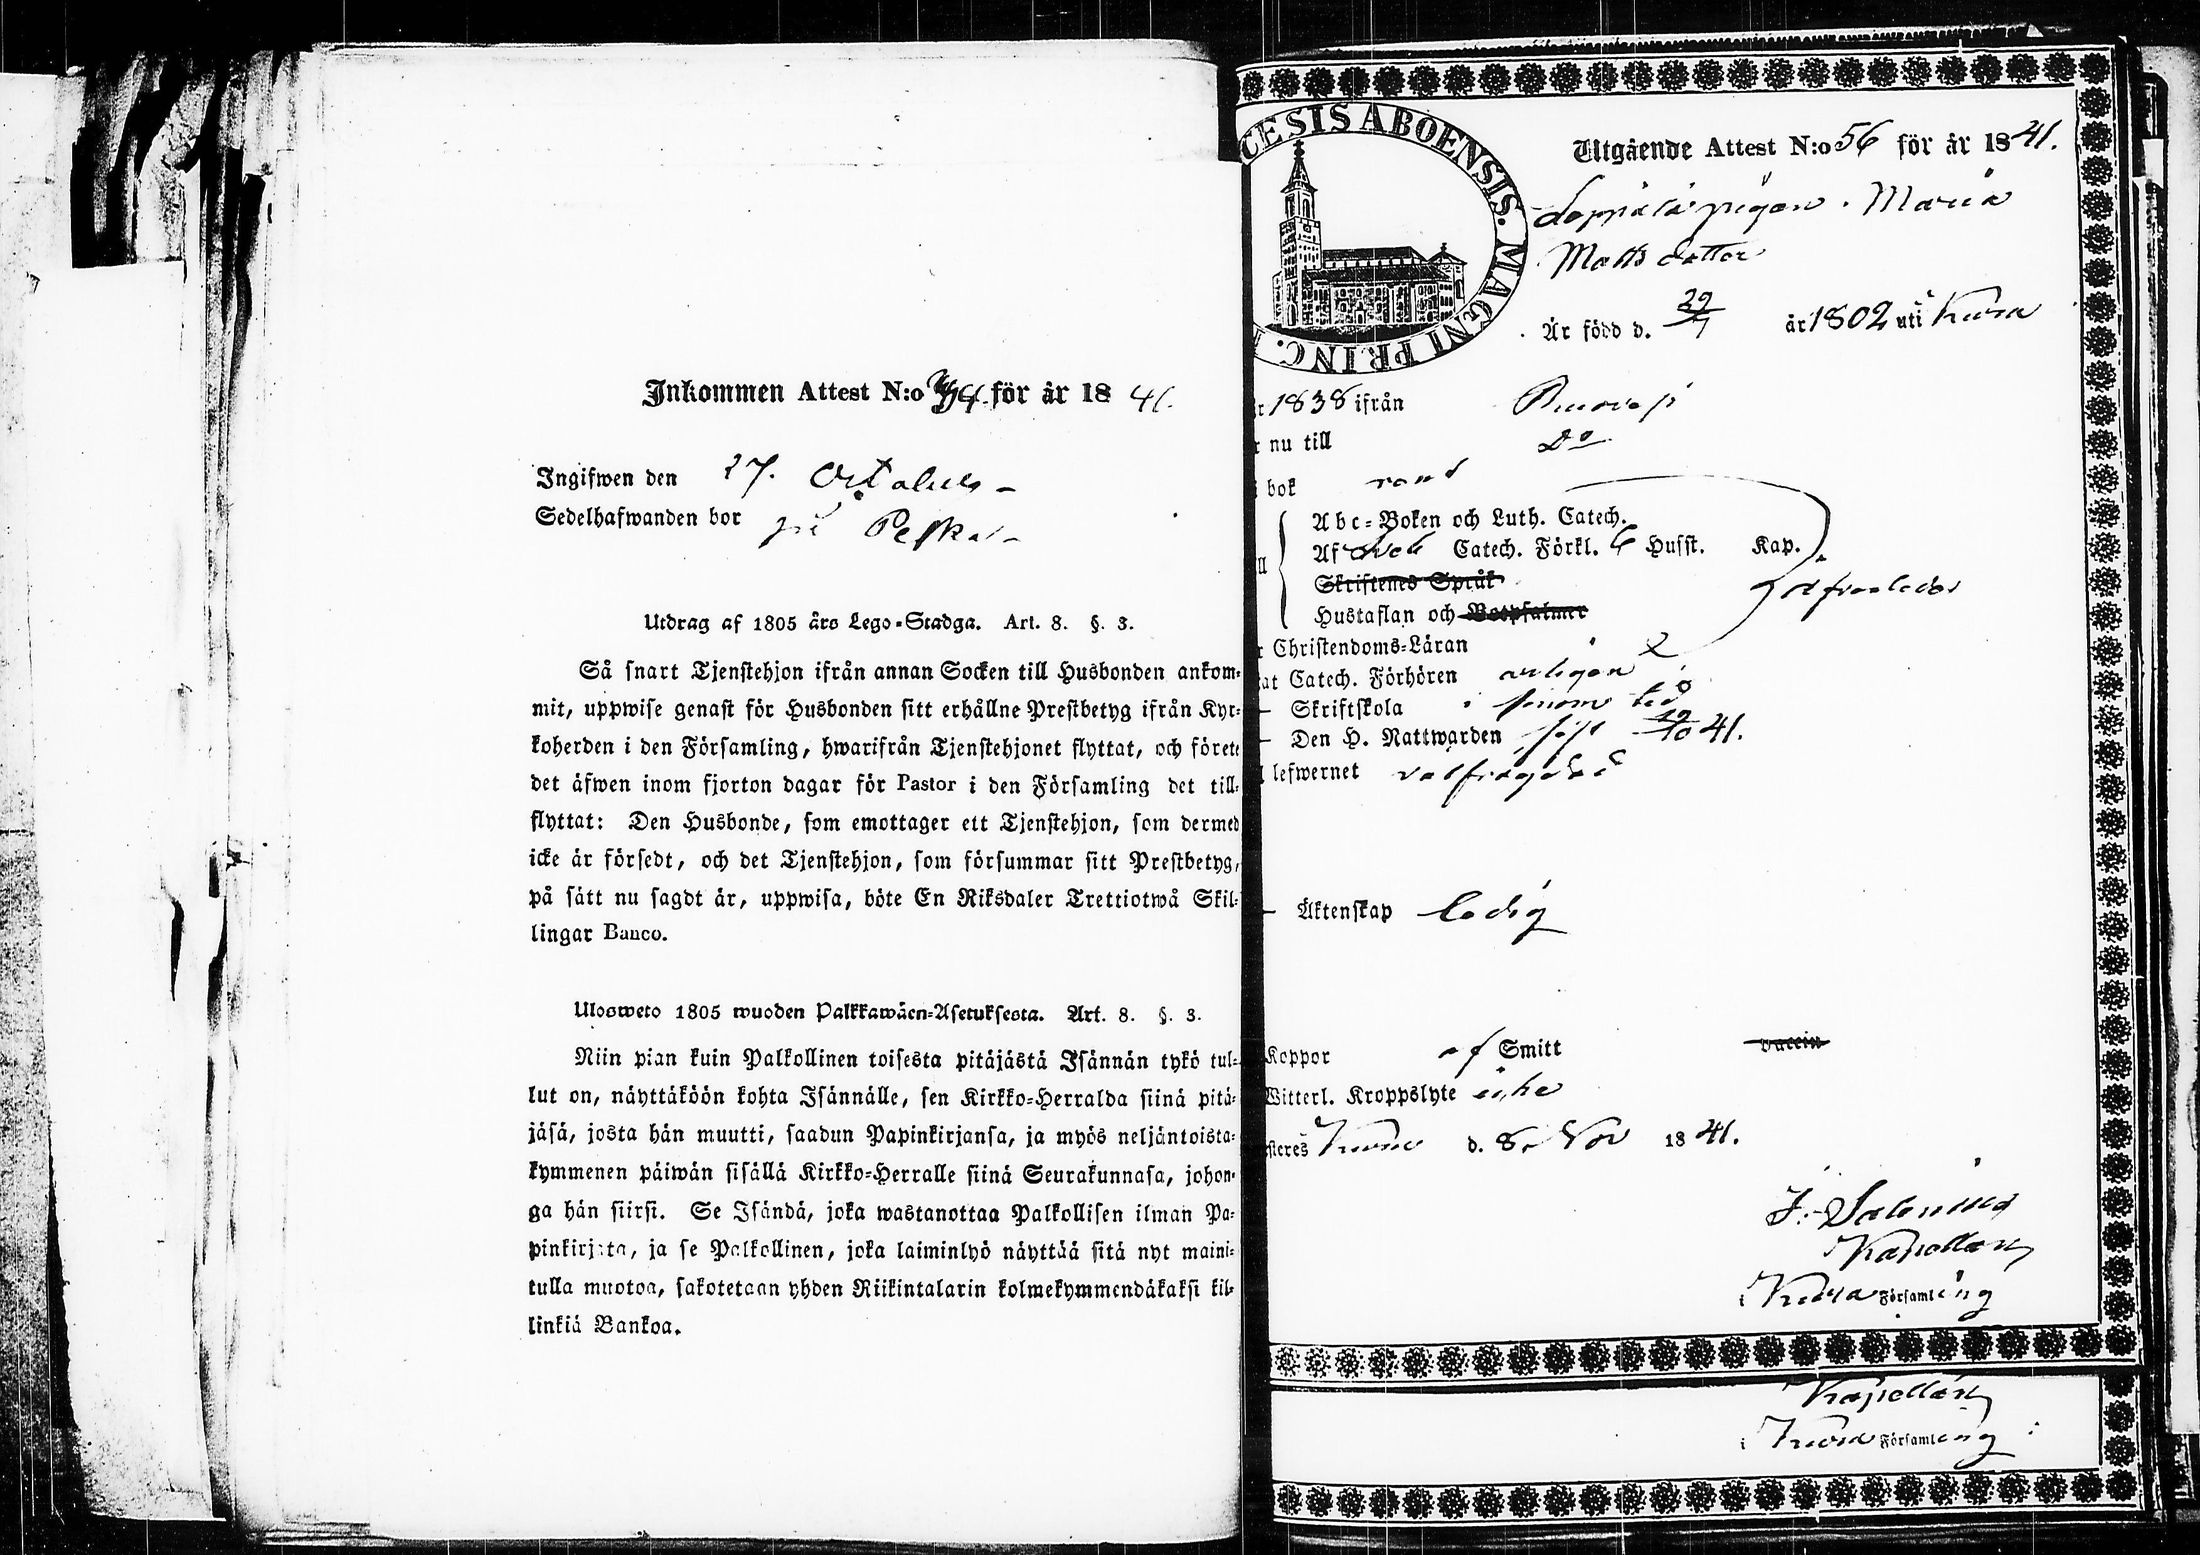 Inkommen Attest N:o för år 18 41.
Ingifwen den 27. Octobris
Sedelhafwanden bor på
Utdrag af 1805 års Lego-Stadga. Art. 8. §. 3.
Så snart Tjenstehjon ifrån annan Socken till Husbonden ankom-
mit, uppwise genast för Husbonden sitt erhållne Prestbetyg ifrån Kyr-
koherden i den Församling, hwarifrån Tjenstehjonet flyttat, och förete
det äfwen inom fjorton dagar för Pastor i den Församling det till-
flyttat: Den Husbonde, som emottager ett Tjenstehjon, som dermed
icke är försedt, och det Tjenstehjon, som försummar sitt Prestbetyg,
på sätt nu sagdt är, uppwisa, böte En Riksdaler Trettiotwå Skil-
lingar Banco.
Ulosweto 1805 wuoden Palkkawäen-Asetuksesta. Art. 8. §. 3.
Niin pian kuin Palkollinen toisesta pitäjästä Isännän tykö tul-
lut on, näyttäköön kohta Isännälle, sen Kirkko-Herralda siinä pitä-
jäsä, josta hän muutti, saadun Papinkirjansa, ja myös neljäntoista-
kymmenen päiwän sisällä Kirkko-Herralle siinä Seurakunnasa, johon-
ga hän siirsi. Se Isändä, joka wastanottaa Palkollisen ilman Pa-
pinkirjata, ja se Palkollinen, joka laiminlyö näyttää sitä nyt maini-
tulla muotoa, sakotetaan yhden Riikintalarin kolmekymmendäkaksi kil-
linkiä Bankoa.
CESIS ABOENSIS. MAGNI PRINC.
Utgående Attest N:o 56 för år 18 41.
pigan Maria
Matts dotter
Är född d. 29/7 år 1802 uti Kiusa
1838 ifrån
nu till Do
i bok
Abc-Boken och Luth. Catech.
Af Catech. Förkl. Husst. Kap.
Skriftenes Språk
Hustaflan och Botpsalmer
Christendoms-Läran
Catech. Förhören årligen
Skriftskola i sinom tid
Den H. Nattwarden sist 10 41.
lefwernet välfrägdad
Äktenskap ledig
Koppor af Smitt vaccin
Witterl. Kroppslyte icke
d. 8. Nov 18 41.
Kapellan
i Församling
Kapellan
i Församling